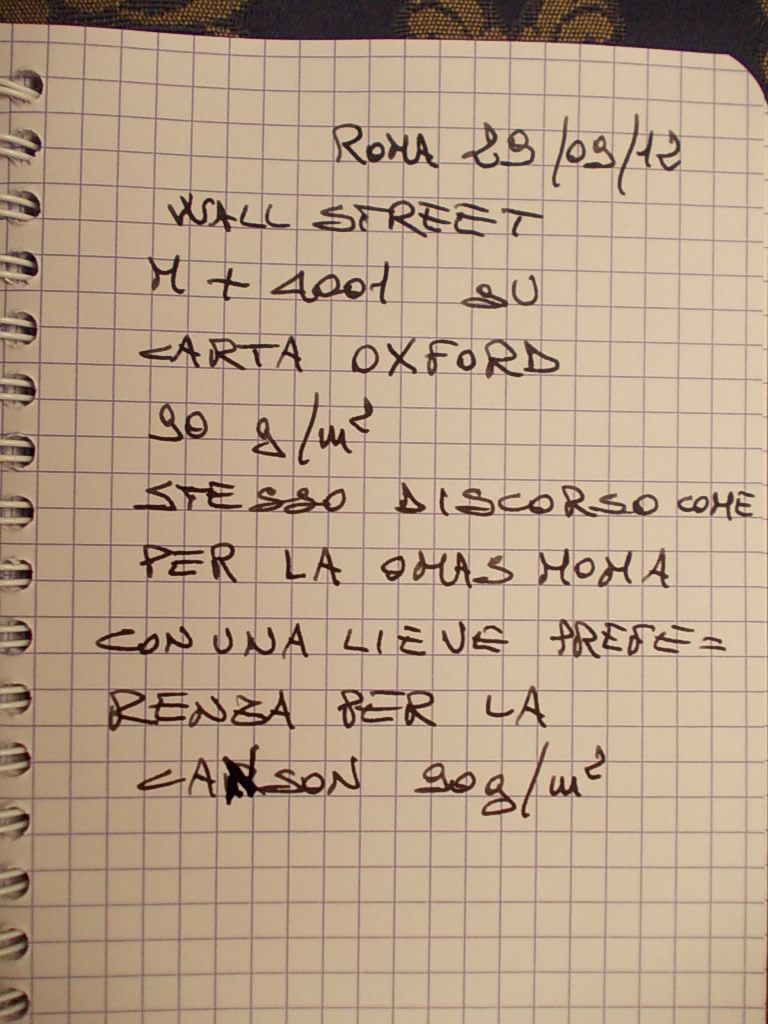 ROMA 29/09/12
WALL STREET
M + 4001 SU
CARTA OXFORD
90 g/m²
STESSO DISCORSO COME
PER LA OMAS MOMA
CON UNA LIEVE PREFE=
RENZA PER LA
CANSON 90g/m²